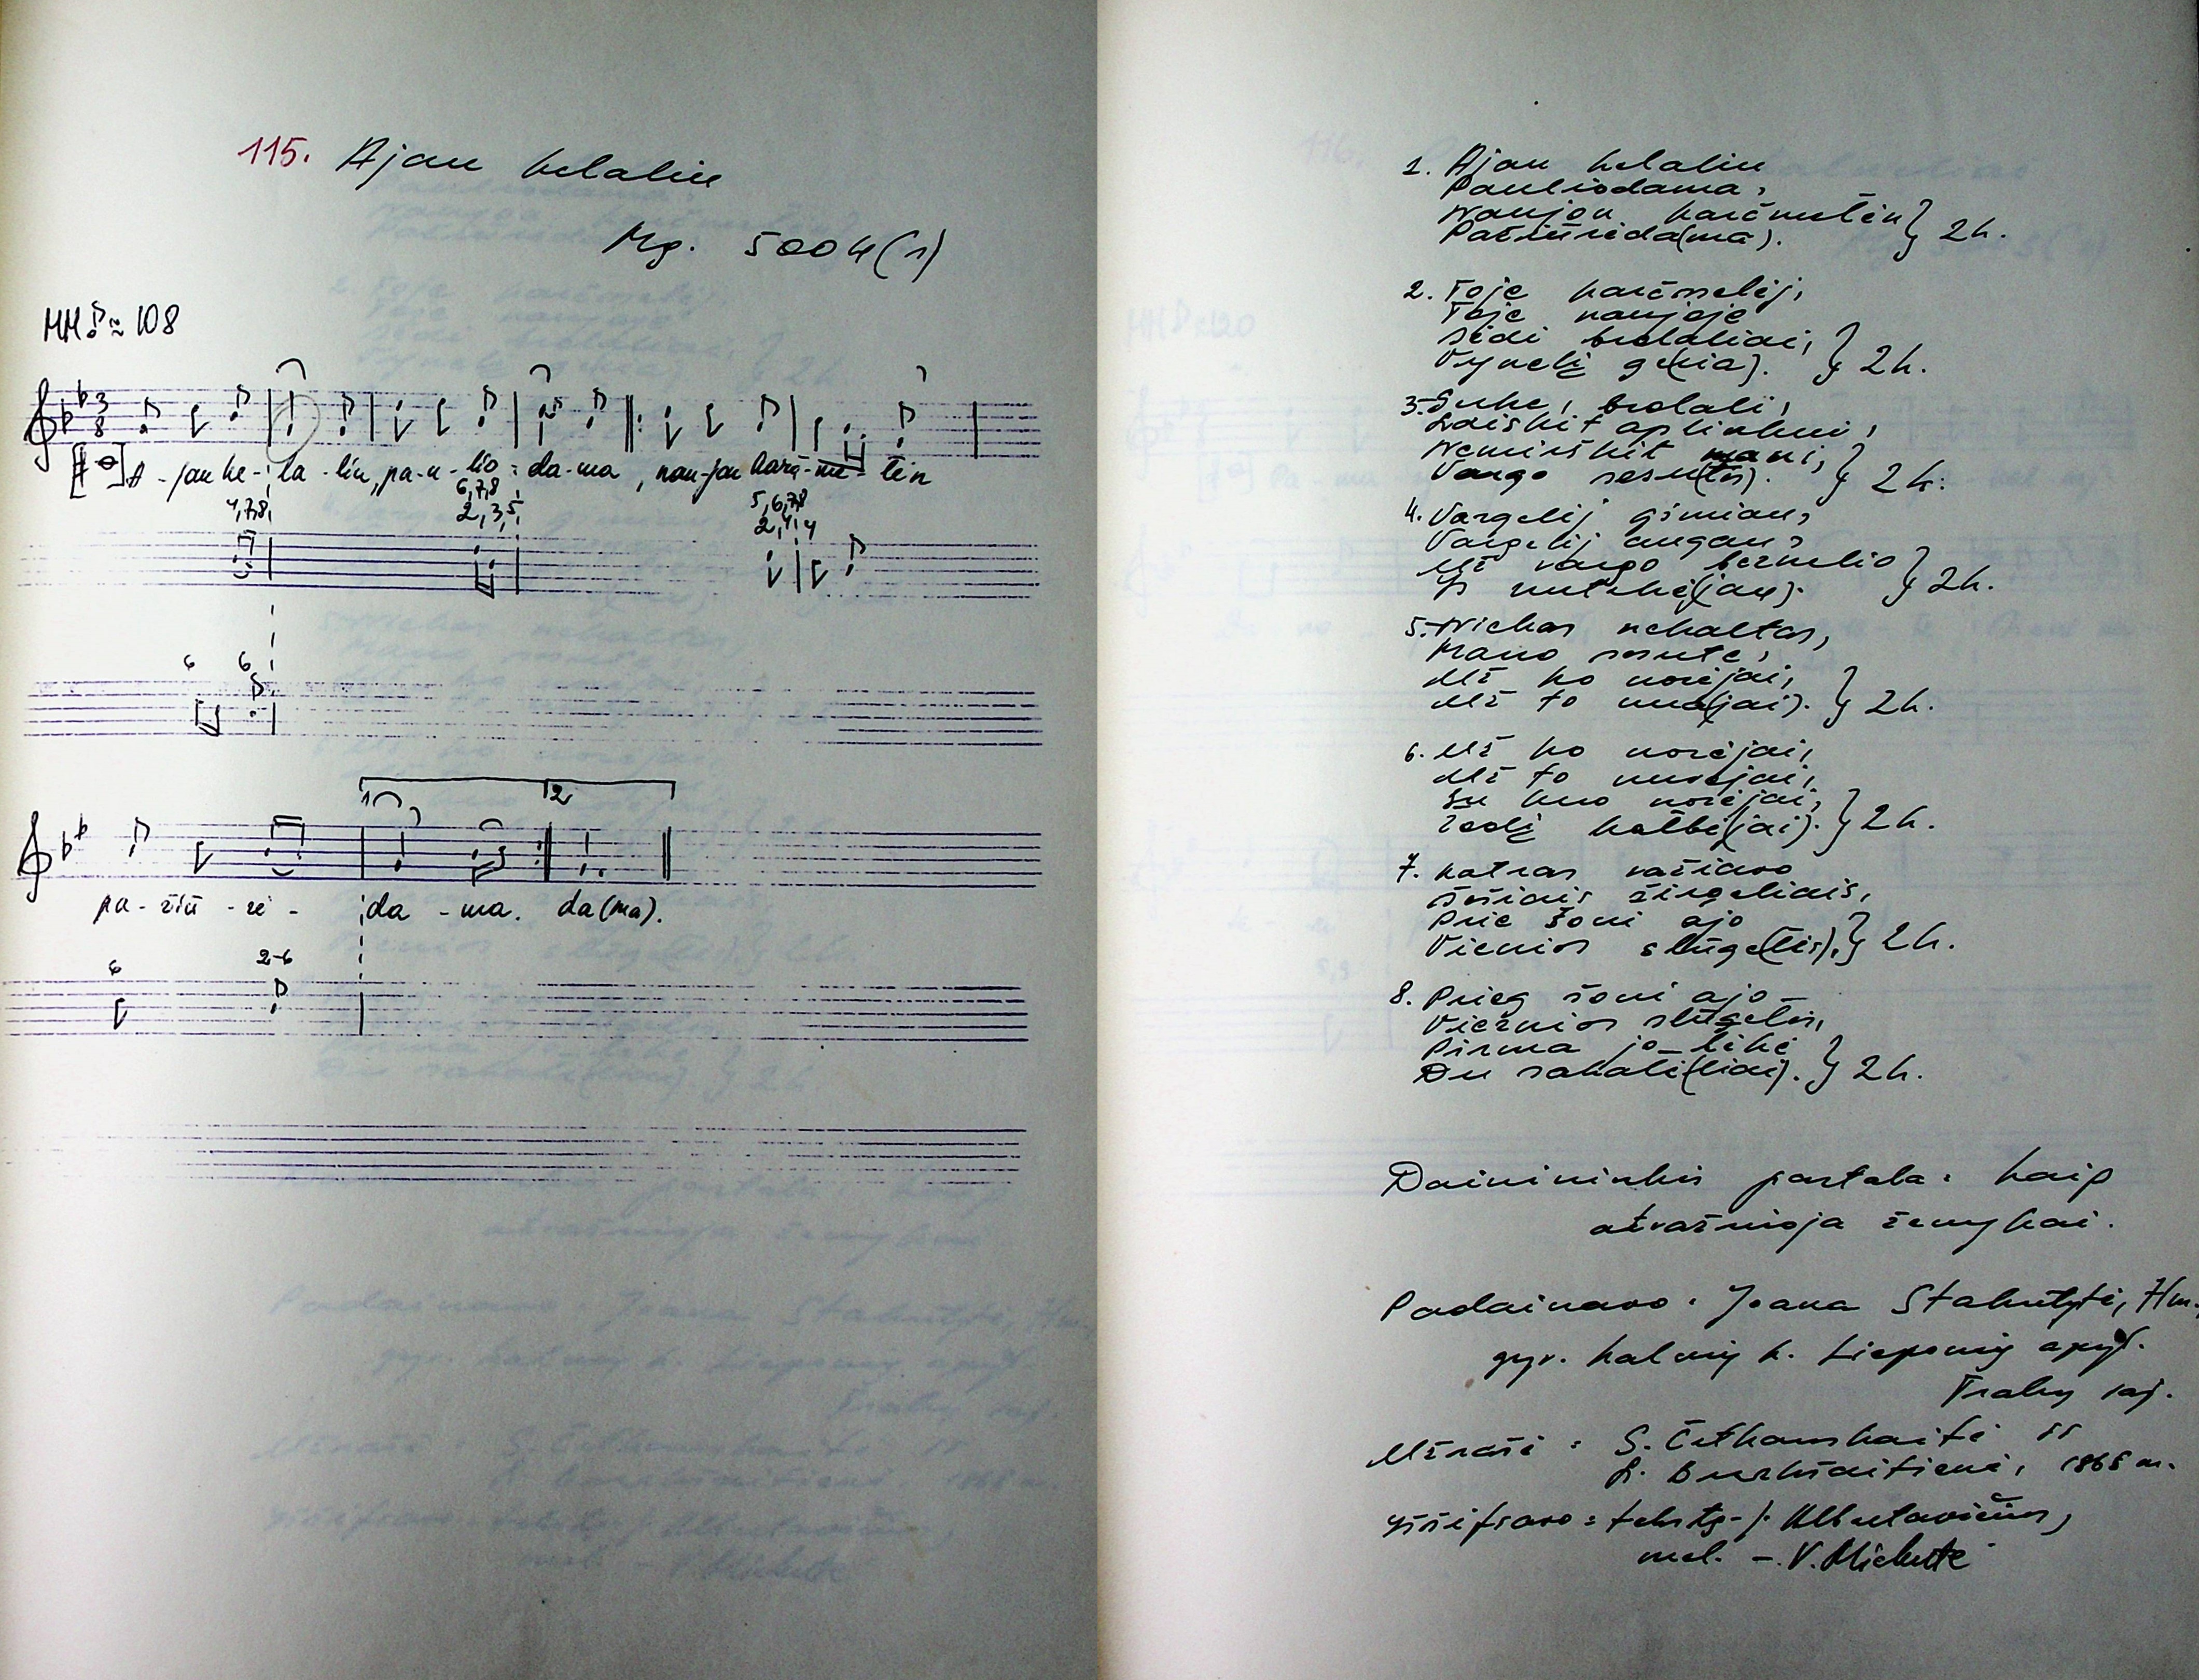 115. Ajau kelaliu
Mg. 5004(1)
MM ♪≈108
3
8
A-jau ke-la-liu, pa-u-lio-da-ma, nau-jon karč-me-lėn
6,7,8
4,7,8, 2,3,5,
5,6,7,8
2,4
6 6
1 2
pa-žiū-rė-da-ma. da(ma).
6 2-6
1. Ajau kelaliu
Pauliodama,
Naujon karčmelėn } 2k.
Pažiūrėda(ma).
2. Toje karčmelėj,
Toje naujoje
Sėdi brolaliai, } 2k.
Vynelį ge(ria).
3. Suke, brolali,
Laiškit aplinkui,
Nemirškit mani, } 2k.
Vargo sesu(tės).
4. Vargelij gimiau,
Vargelij augau,
Už vargo bernelio } 2k.
Iš nutekė(jau).
5. Niekas nekaltas,
Mano sesute,
Už ko norėjai, } 2k.
Už to nuė(jai).
6. Už ko norėjai,
Už to nuvėjai,
Su kuo norėjai, } 2k.
Žodį kalbė(jai).
7. Katras važiavo
Šėšiais žirgeliais,
Prie šoni ajo } 2k.
Viernios slūge(lis).
8. Prieg šoni ajo
Viernios slūgelis,
Pirma jo lėkė } 2k.
Du sakalė(liai).
Dainininkės pastaba: kaip
atvažiuoja ženykai.
Padainavo: Joana Stakutytė, 71m.,
gyv. Kalnių k. Lieponių apyl.
Trakų raj.
Užrašė: S. Četkauskaitė ir
L. Burkšaitienė, 1968 m.
Iššifravo: tekstą - J. Albutavičius,
mel. - V. Mickutė